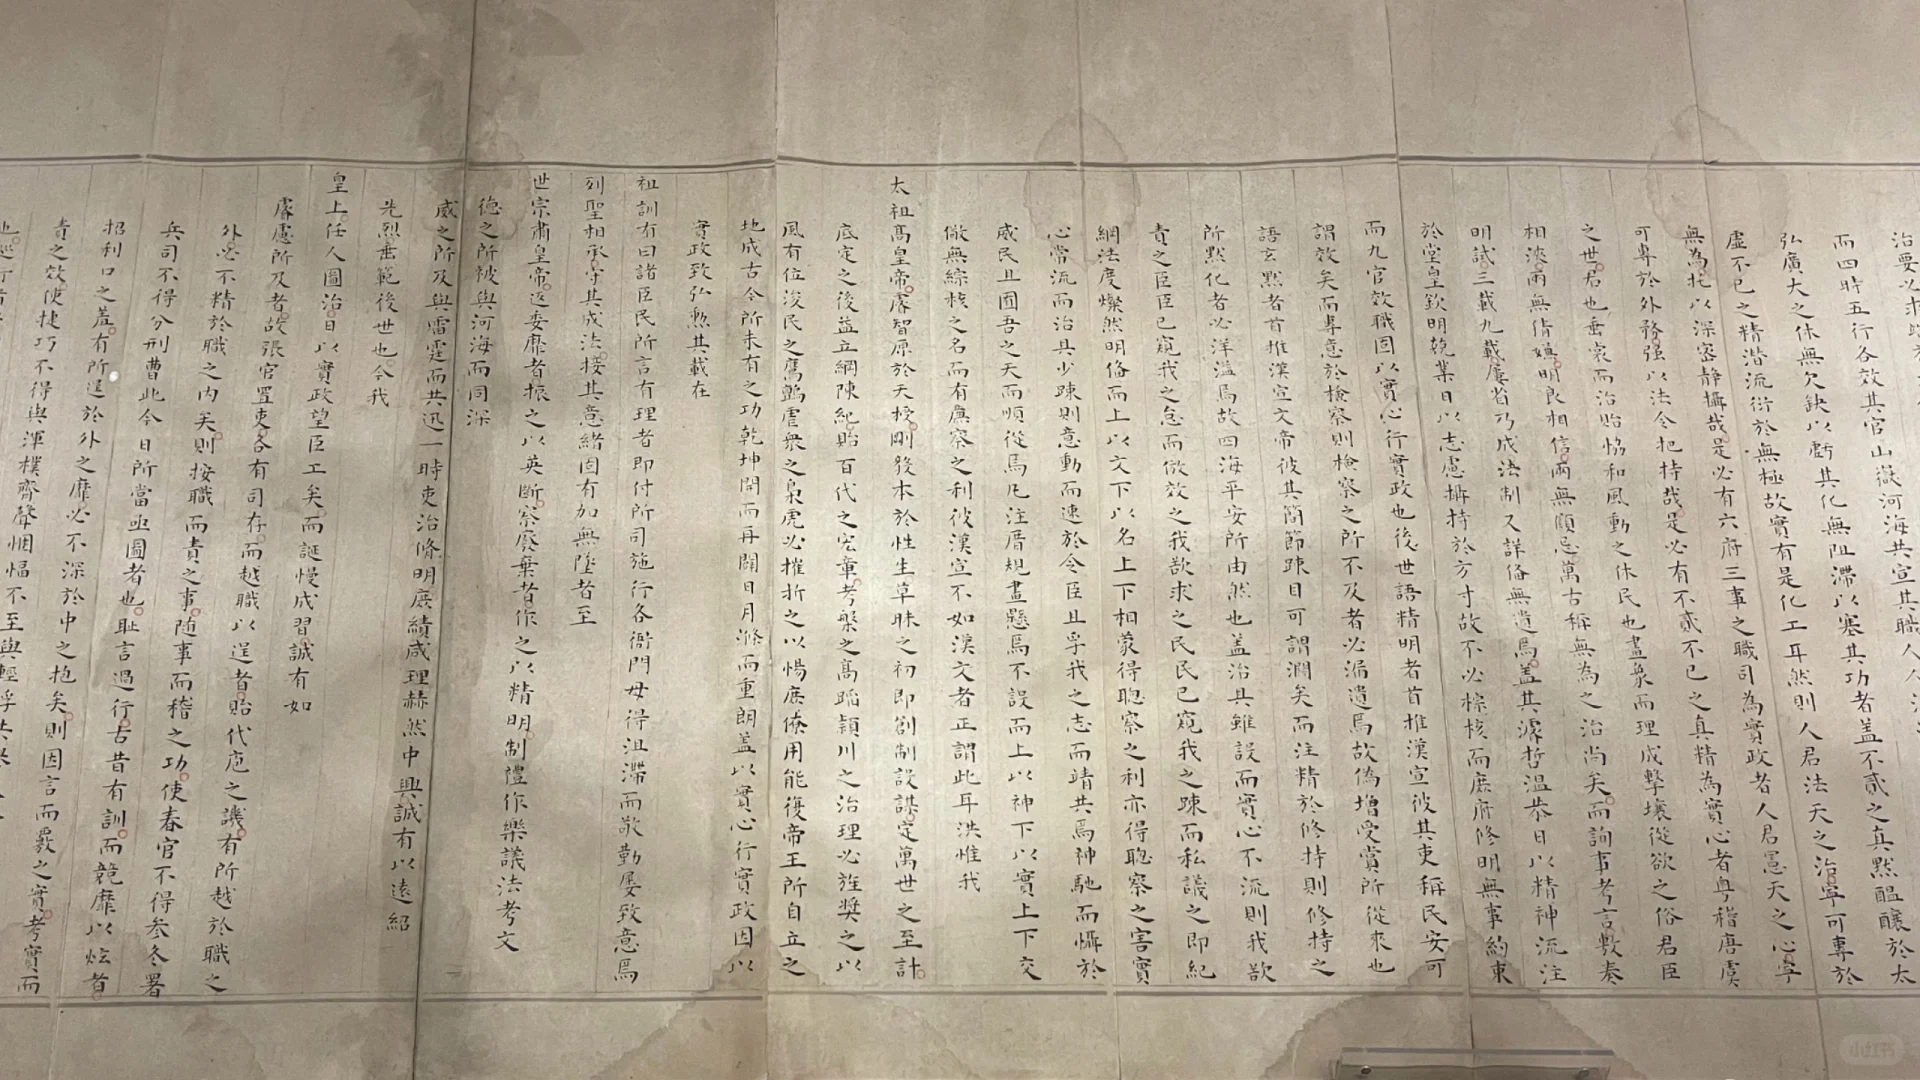 治要以求
而四時五行各效其官山嶽河海共宣其職人人
弘廣大之休無欠缺以虧其化無阻滯以塞其功者蓋不貳之真默醞釀於太
虛不已之精潛流衍於無極故實有是化工耳然則人君法天之治寧可專於
無為托以深宮靜攝哉是必有六府三事之職司為實政者人君憲天之心寧
可專於外務強以法令把持哉是必有不貳不已之真精為實心者粵稽唐虞
之世君也垂裳而治貽協和風動之休民也畫衆而理成擊壤從欲之俗君臣
相浹兩無猜嫌明良相信兩無顧忌萬古稱無為之治尚矣而詢事考言敷奏
明試三載九載屢省乃成法制又詳備無遺焉蓋其濬哲溫恭日以精神流注
於堂皇欽明兢業日以志慮攝持於方寸故不必綜核而庶府修明無事約束
而九官效職固以實心行實政也後世語精明者首推漢宣彼其吏稱民安可
謂效矣而專意於檢察則檢察之所不及者必漏遺焉故偽增受賞所從來也
語玄默者首推漢宣文帝彼其簡節疎目可謂濶矣而注精於修持則修持之
所默化者必洋溢焉故四海平安所由然也蓋治具雖設而實心不流則我欲
責之臣臣已窺我之怠而倣效之我欲求之民民已窺我之疎而私議之即紀
綱法度燦然明俻而上以文下以名上下相蒙得聦察之利亦得聦察之害實
心常流而治具少疎則意動而速於令臣且孚我之志而靖共焉神馳而懾於
威民且囿吾之天而順從焉凡注厝規畫懸焉不設而上以神下以實上下交
儆無綜核之名而有廉察之利彼漢宣不如漢文者正謂此耳洪惟我
太祖髙皇帝睿智原於天授剛毅本於性生草昧之初即創制設謀定萬世之至計
底定之後益立綱陳紀貽百代之宏章考槃之髙蹈潁川之治理必旌奬之以
風有位浚民之鷹鸇虐衆之梟虎必摧折之以惕庶僚用能復帝王所自立之
地成古今所未有之功乾坤開而再闢日月滌而重朗蓋以實心行實政因以
實政致弘勲其載在
祖訓有曰諸臣民所言有理者即付所司施行各衙門毋得沮滯而敬勤屡致意焉
列聖相承守其成法接其意緒固有加無墜者至
世宗肅皇帝返委靡者振之以英斷察廢棄者作之以精明制禮作樂議法考文
德之所被與河海而同深
威之所及與雷霆而共迅一時吏治修明庶績咸理赫然中興誠有以遠紹
先烈垂範後世也今我
皇上任人圖治日以實政望臣工矣而誕慢成習誠有如
睿慮所及者故張官置吏各有司存而越職以逞者貽代庖之譏有所越於職之
外必不精於職之內矣則按職而責之事隨事而稽之功使春官不得參冬署
兵司不得分刑曹此今日所當亟圖者也耻言過行古昔有訓而競靡以炫者
招利口之羞有所逞於外之靡必不深於中之抱矣則因言而覈之實考實而
責之效使捷巧不得與渾樸齊聲悃愊不至與輕浮共